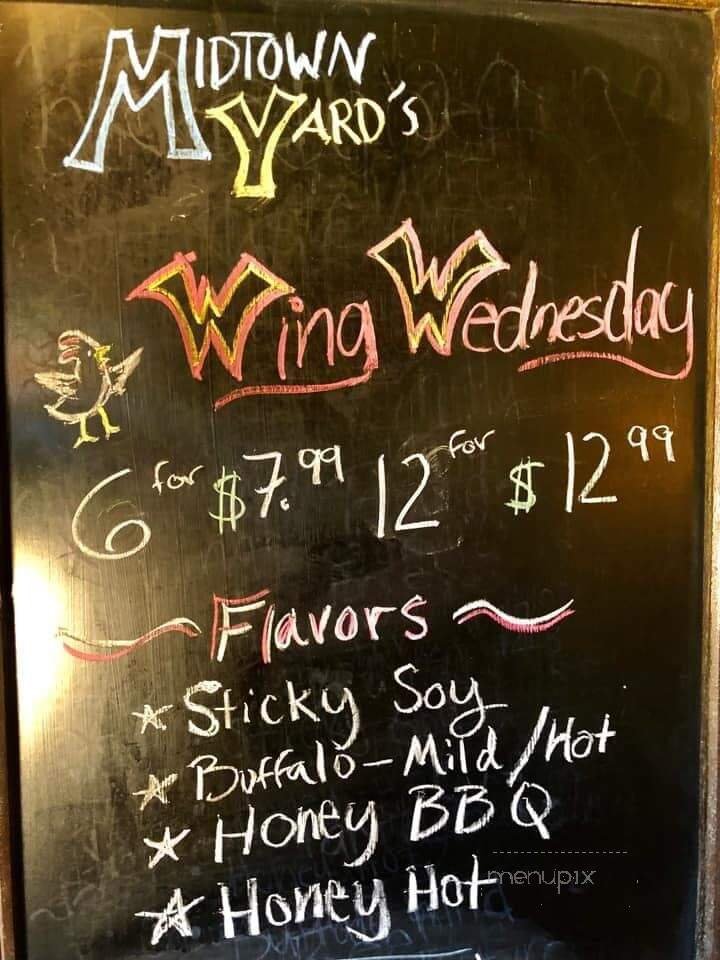 MIDTOWN
YARD'S
Wing Wednesday
6 for $7.99 12 for $12.99
Flavors
Sticky Soy
Buffalo - Mild/Hot
Honey BBQ
Honey Hot
menupix